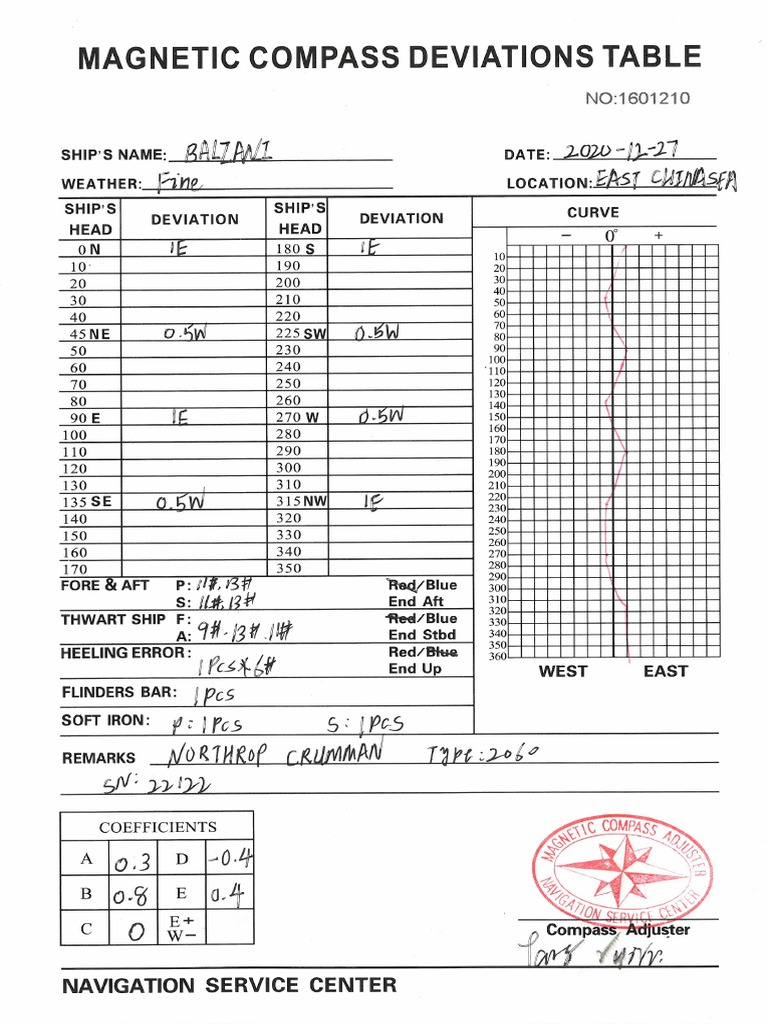 MAGNETIC COMPASS DEVIATIONS TABLE
NO:1601210
SHIP'S NAME: BALTANI DATE: 2020-12-27
WEATHER: Fine LOCATION: EAST CHINASEA
SHIP'S HEAD DEVIATION SHIP'S HEAD DEVIATION CURVE
− 0° +
0 N 1E 180 S 1E
10 190
20 200
30 210
40 220
45 NE 0.5W 225 SW 0.5W
50 230
60 240
70 250
80 260
90 E 1E 270 W 0.5W
100 280
110 290
120 300
130 310
135 SE 0.5W 315 NW 1E
140 320
150 330
160 340
170 350
10
20
30
40
50
60
70
80
90
100
110
120
130
140
150
160
170
180
190
200
210
220
230
240
250
260
270
280
290
300
310
320
330
340
350
360
WEST EAST
FORE & AFT P: 11#.13# Red/Blue
S: 11#.13# End Aft
THWART SHIP F: Red/Blue
A: 9#.13#.11# End Stbd
HEELING ERROR: Red/Blue
1Pcs*6# End Up
FLINDERS BAR: 1Pcs
SOFT IRON: P:1Pcs S:1Pcs
REMARKS NORTHROP CRUMMAN Type:2060
SN: 22122
COEFFICIENTS
A 0.3 D -0.4
B 0.8 E 0.4
C 0 E+ W−
MAGNETIC COMPASS ADJUSTER
NAVIGATION SERVICE CENTER
Compass Adjuster
NAVIGATION SERVICE CENTER